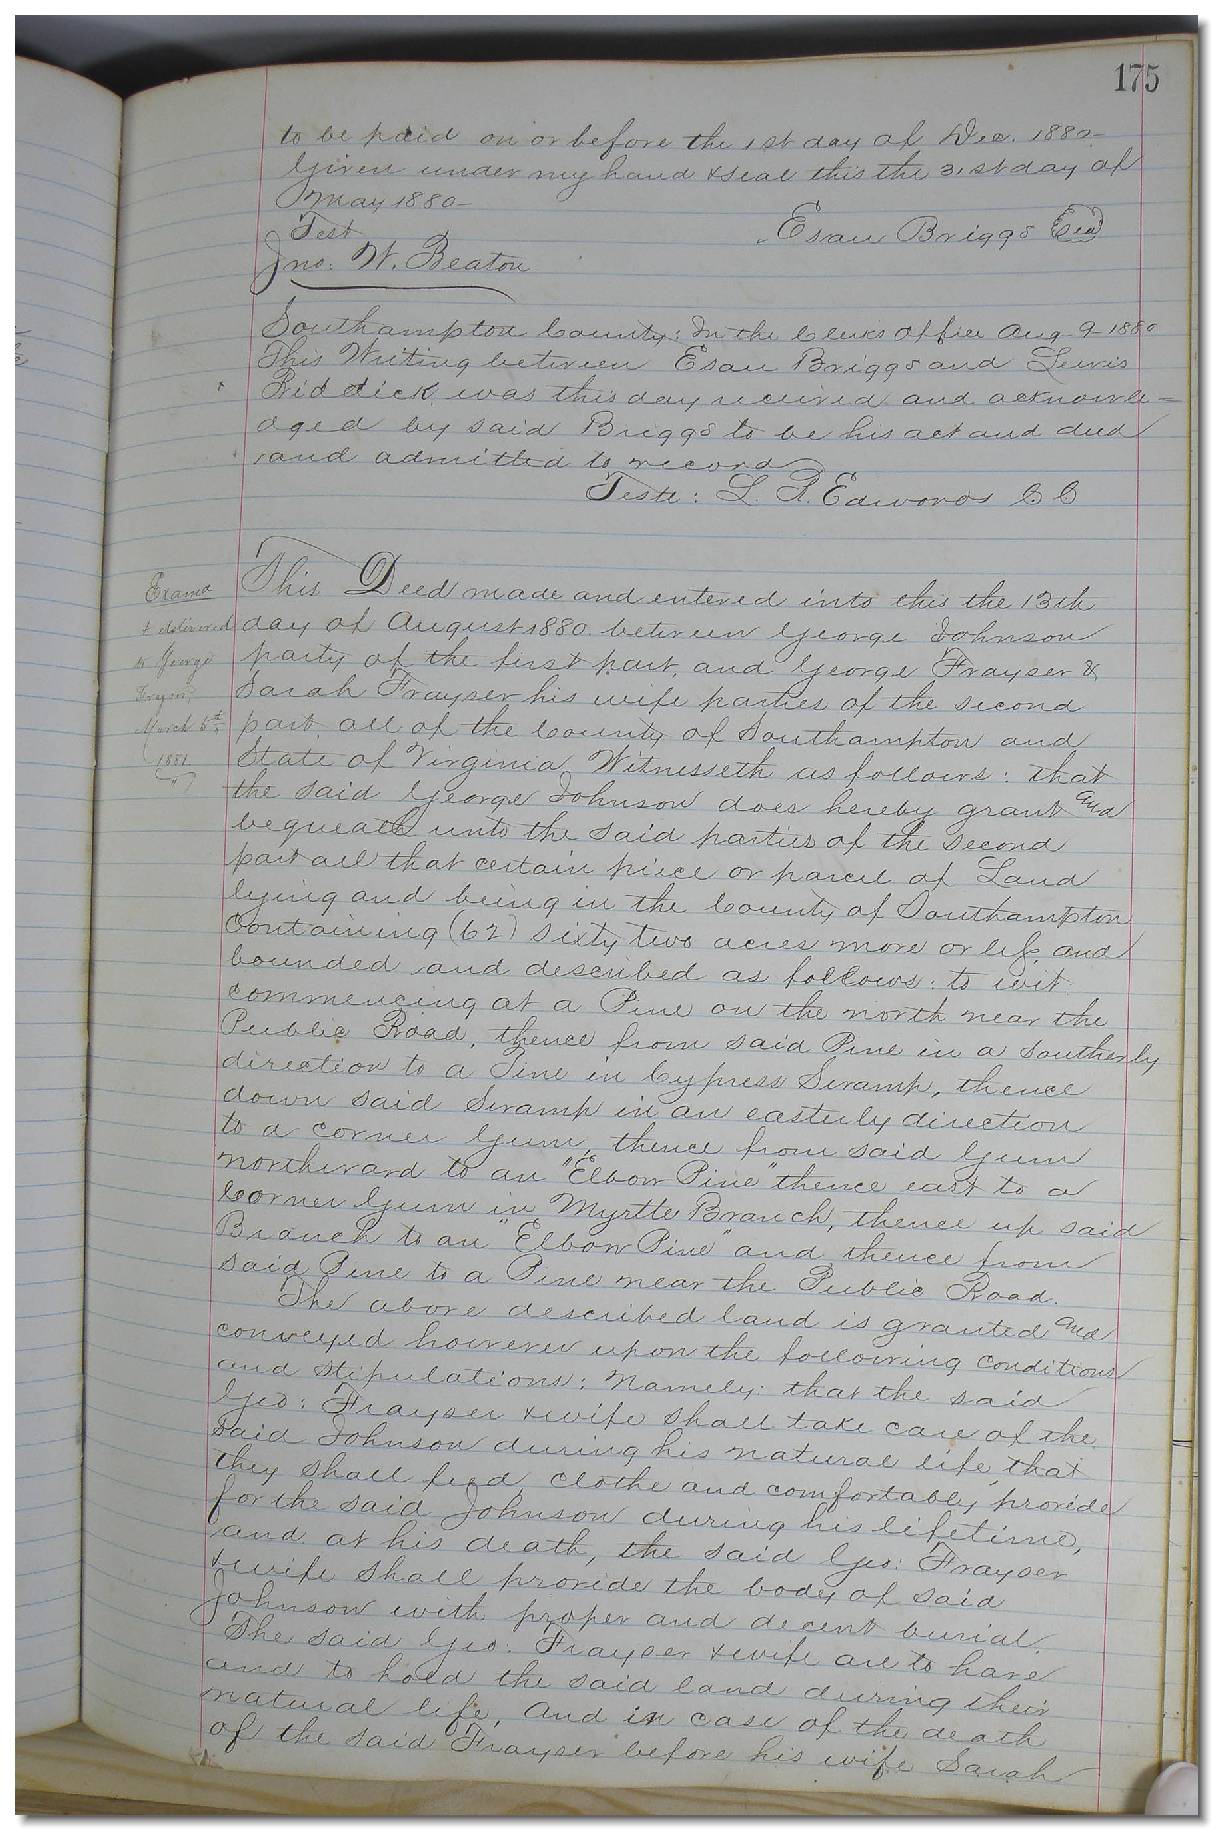 175
to be paid on or before the 1st day of Dec. 1880-
Given under my hand & seal this the 31st day of
May 1880-
Test
Esau Briggs Seal
Jno: W. Beaton
Southampton County: In the Clerks Office Aug 9-1880
This Writing between Esau Briggs and Lewis
Riddick was this day received and acknowle=
dged by said Briggs to be his act and deed
and admitted to record
Teste: L. R. Edwards C C
Examd
& delivered
to George
Frayser,
March 5th
1881
This Deed made and entered into this the 13th
day of August 1880 between George Johnson
party of the first part, and George Frayser &
Sarah Frayser his wife parties of the second
part all of the County of Southampton and
State of Virginia Witnesseth as follows: that
the said George Johnson does hereby grant and
bequeath unto the said parties of the second
part all that certain piece or parcel of Land
lying and being in the County of Southampton
Containing (62) sixty two acres more or less and
bounded and described as follows: to wit
commencing at a Pine on the north near the
Public Road, thence from said Pine in a Southerly
direction to a Pine in Cypress Swamp, thence
down said Swamp in an easterly direction
to a corner Gum, thence from said Gum
northward to an "Elbow Pine" thence east to a
Corner Gum in Myrtle Branch, thence up said
Branch to an "Elbow Pine" and thence from
said Pine to a Pine near the Public Road.
The above described land is granted and
conveyed however upon the following conditions
and stipulations: Namely: that the said
Geo: Frayser & wife shall take care of the
said Johnson during his natural life, that
they shall feed, clothe and comfortably provide
for the said Johnson during his lifetime,
and at his death, the said Geo: Frayser
& wife shall provide the body of said
Johnson with proper and decent burial.
The said Geo: Frayser & wife are to have
and to hold the said land during their
natural life, And in case of the death
of the said Frayser before his wife Sarah